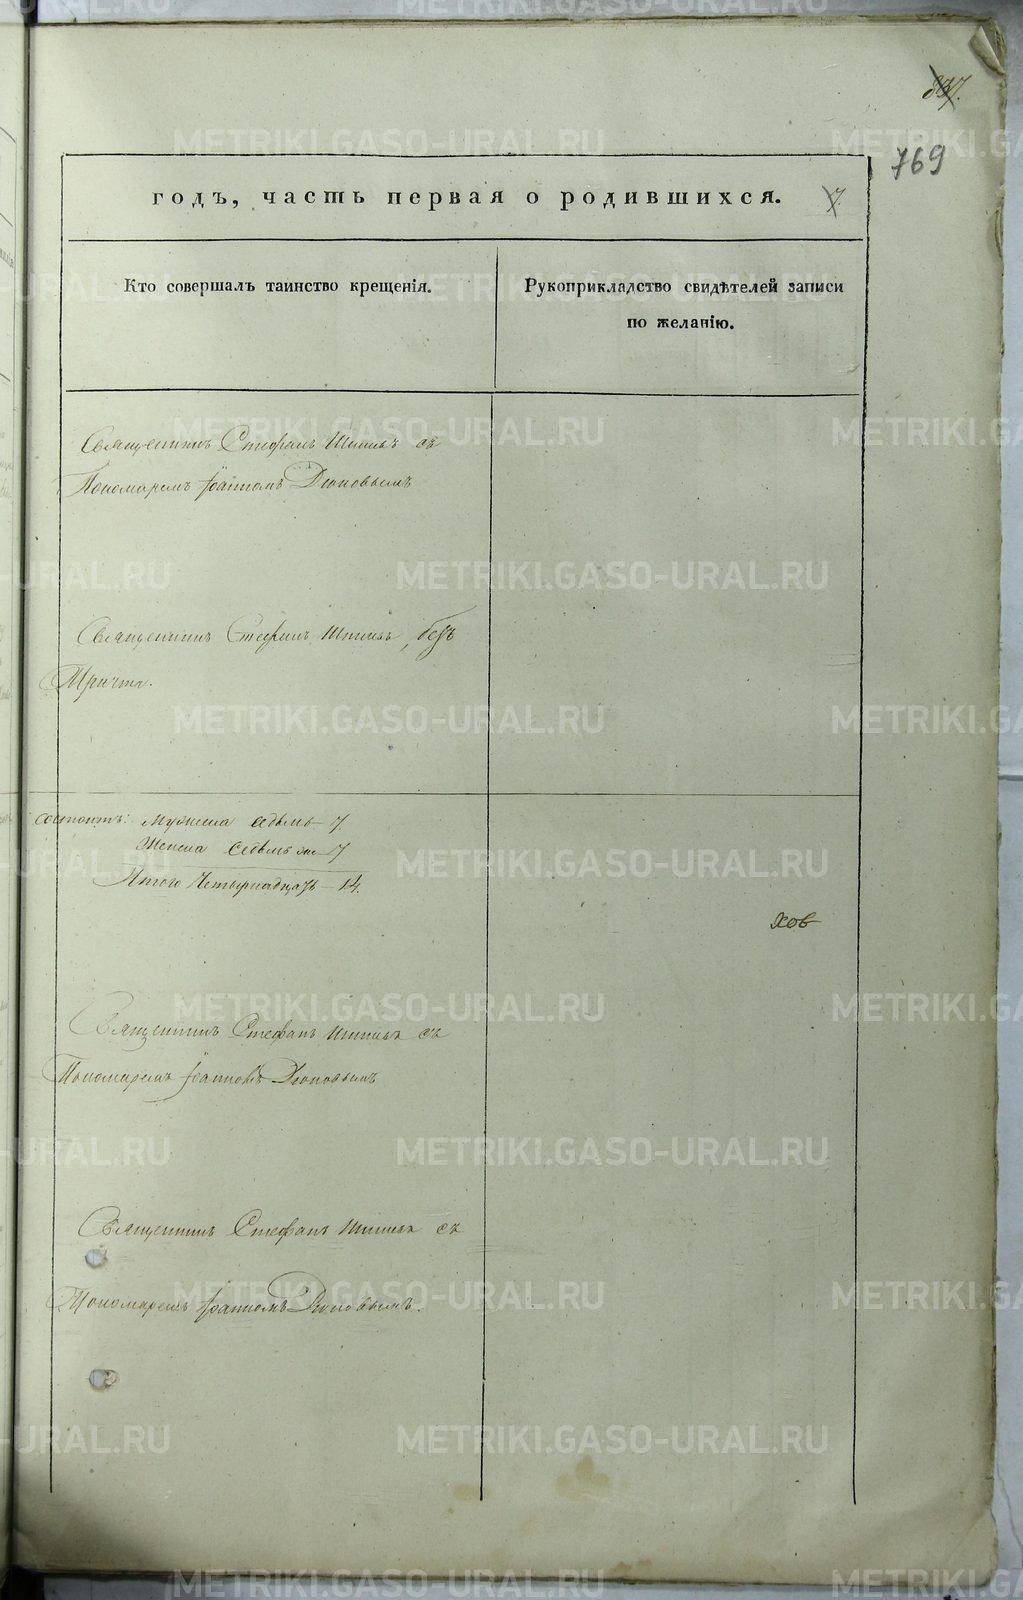 837.
769
годъ, часть первая о родившихся. 7.
Кто совершалъ таинство крещенія.
Рукоприкладство свидѣтелей записи
по желанію.
Священникъ Стефанъ съ
Пономаремъ Іоанномъ
Священникъ Стефанъ безъ
Причта.
состоитъ: Мужеска седмь 7.
Женска седмь же 7
Итого Четырнадцать – 14.
хов
Священникъ Стефанъ съ
Пономаремъ Іоанномъ
Священникъ Стефанъ съ
Пономаремъ Іоанномъ
METRIKI.GASO-URAL.RU